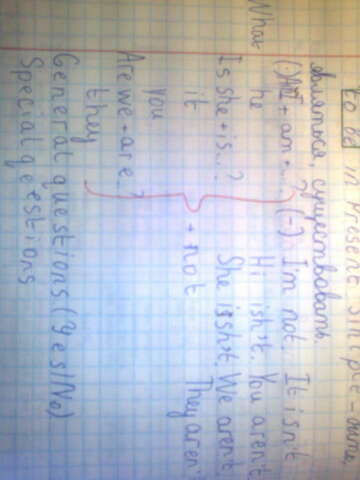 To be in Present Simple - быть,
являться, существовать.
What
(·) I + am + ...? (-) I'm not. It isn't
he Hi ish't. You aren't
Is she + is...? She issh't. We aren't
it + not They aren't
you
Are we + are...?
they
General questions (Yes/No)
Special qestions